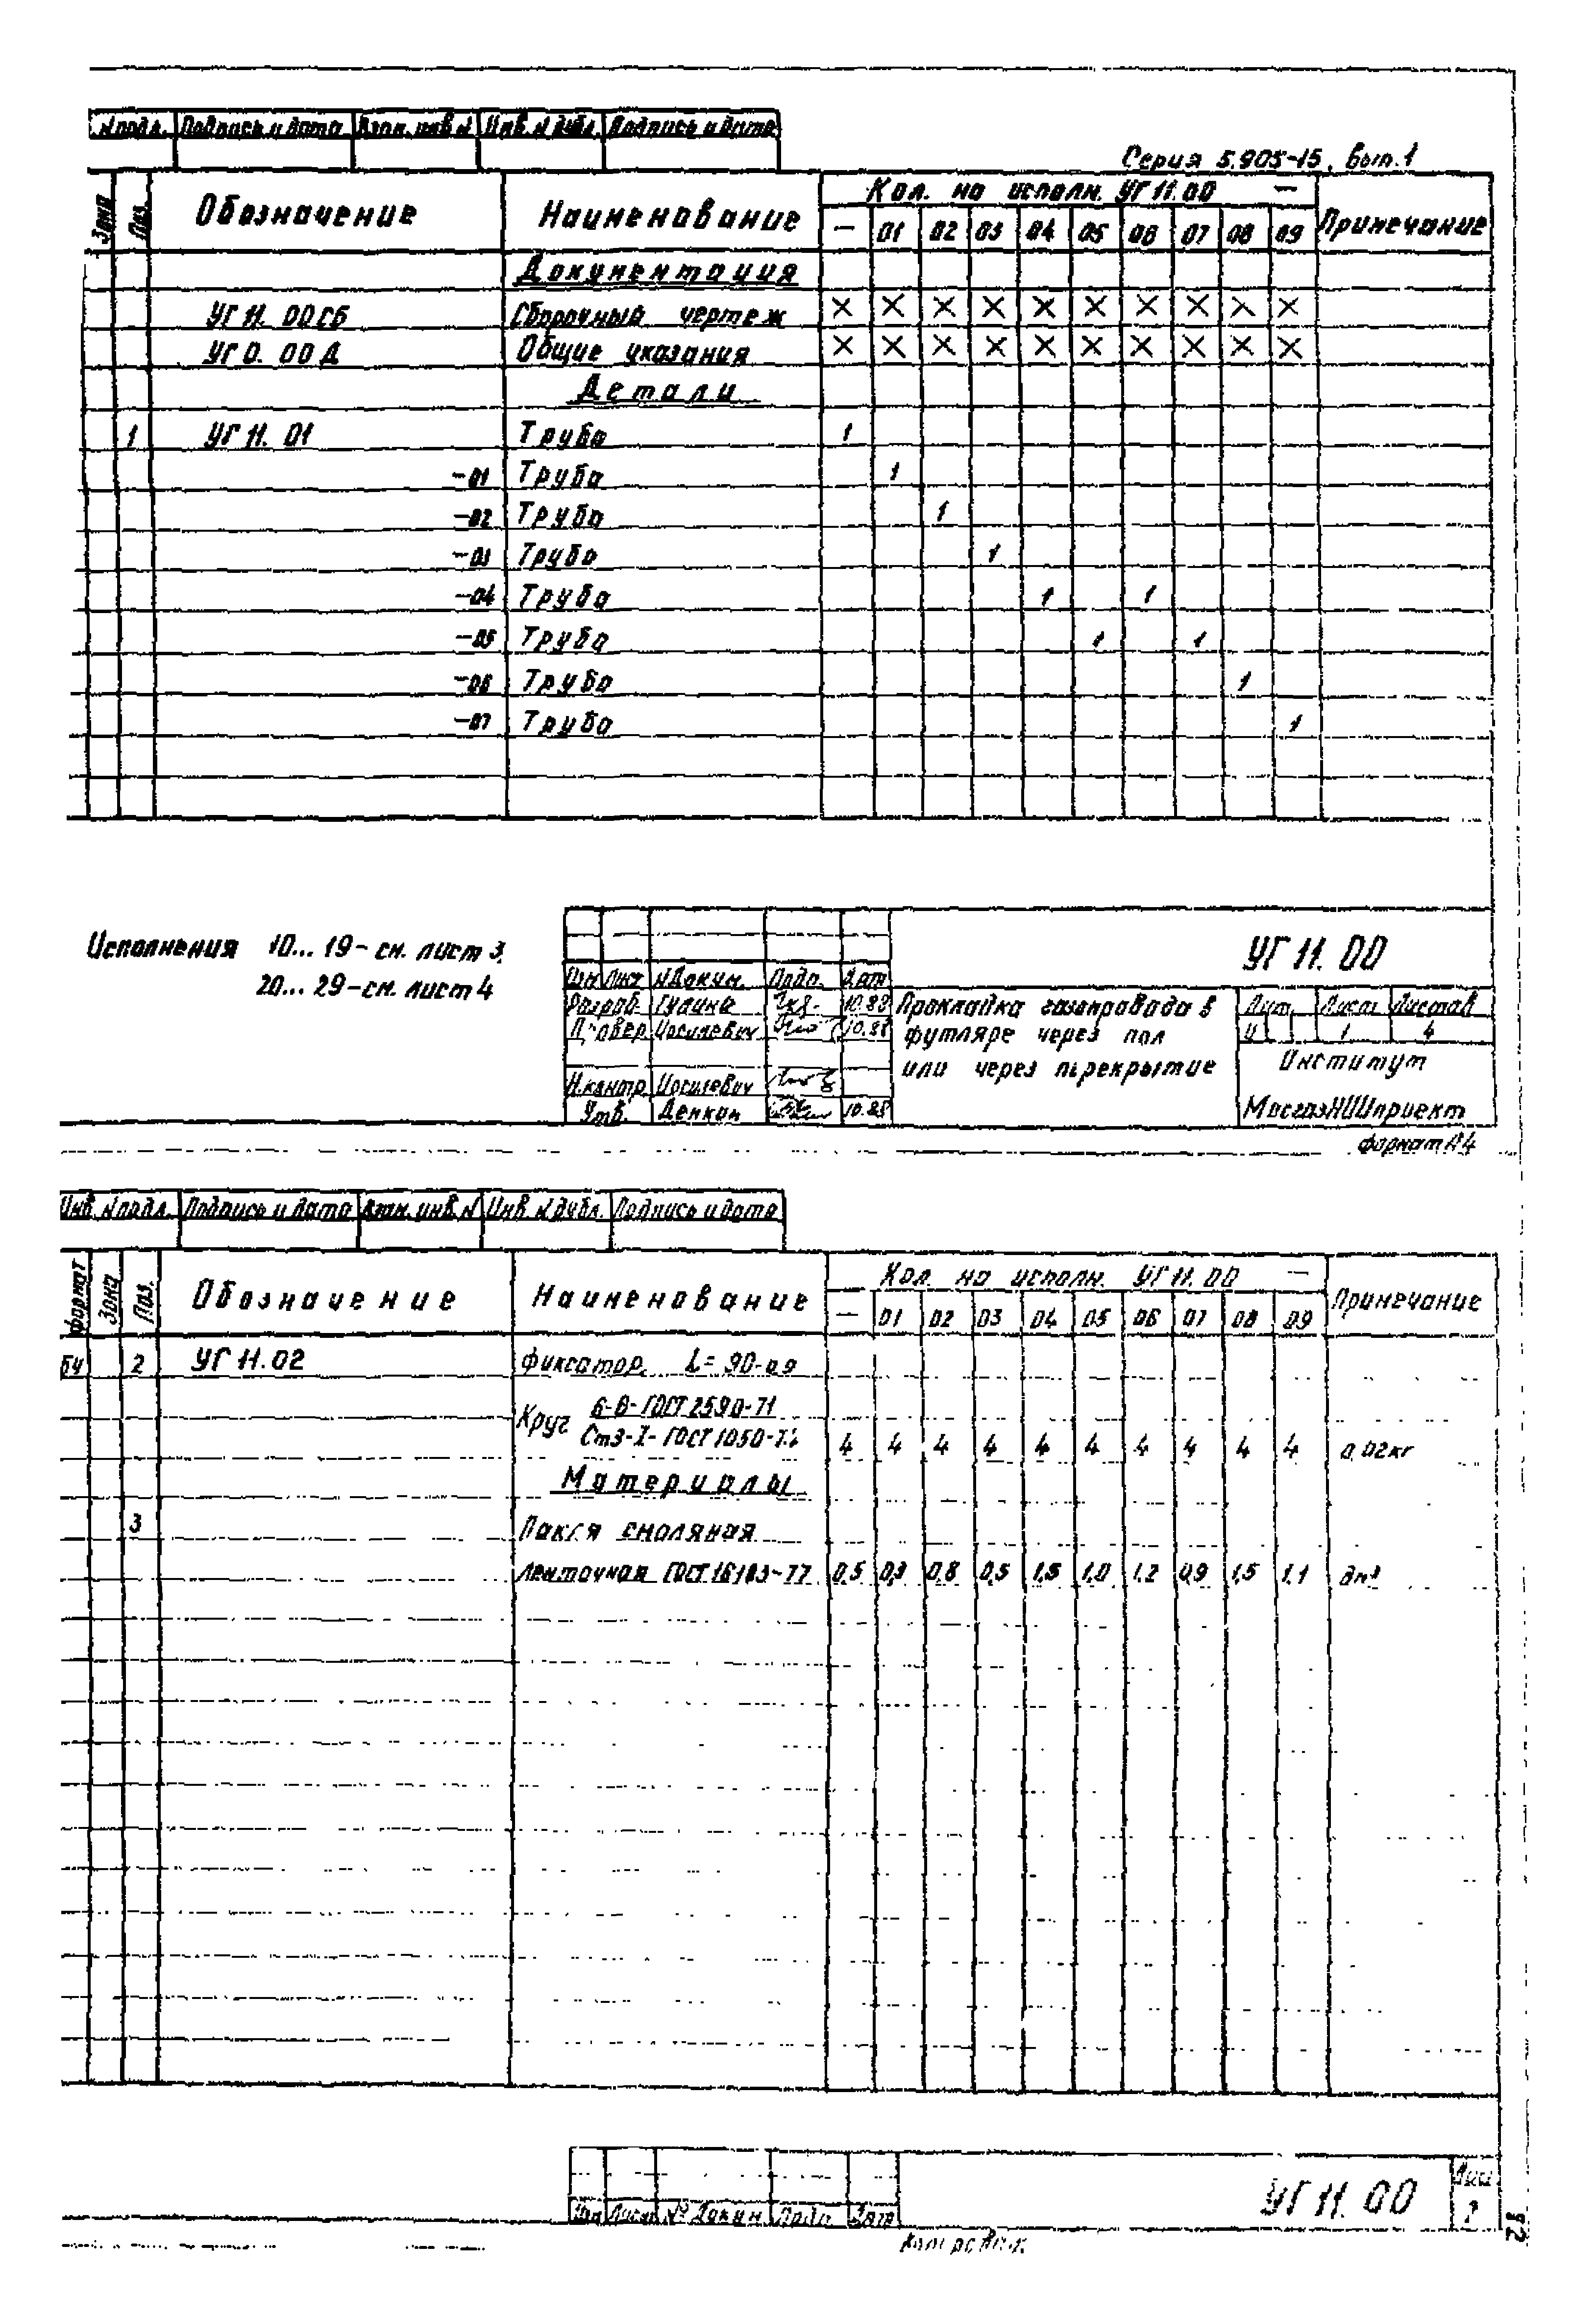 N подл. Подпись и дата Взам. инв. N Инв. N дубл. Подпись и дата
Серия 5.905-15, вып.1
Зона Поз. Обозначение Наименование Кол. на исполн. УГ 11.00 — Примечание
— 01 02 03 04 05 06 07 08 09
Документация
УГ 11. 00 СБ Сборочный чертеж × × × × × × × × × ×
УГ 0. 00 Д Общие указания × × × × × × × × × ×
Детали
1 УГ 11. 01 Труба 1
-01 Труба 1
-02 Труба 1
-03 Труба 1
-04 Труба 1 1
-05 Труба 1 1
-06 Труба 1
-07 Труба 1
Исполнения 10... 19 - см. лист 3,
20... 29 - см. лист 4
УГ 11. 00
Изм Лист N Докум. Подп. Дата
Разраб. Гудина 10.88
Провер. Иосилевич 10.88
Н.контр. Иосилевич
Утв. Денкин 10.88
Прокладка газопровода в
футляре через пол
или через перекрытие
Лит. Лист Листов
И 1 4
Институт
МосгазНИИпроект
формат А4
Инв. N подл. Подпись и дата Взам. инв. N Инв. N дубл. Подпись и дата
формат Зона Поз. Обозначение Наименование Кол. на исполн. УГ 11. 00 — Примечание
— 01 02 03 04 05 06 07 08 09
БЧ 2 УГ 11. 02 Фиксатор. L= 90-0,9
Круг 6-В-ГОСТ 2590-71
Ст3-I- ГОСТ 1050-74 4 4 4 4 4 4 4 4 4 4 0,02кг
Материалы
3 Пакля смоляная
ленточная ГОСТ 16183-77 0,5 0,3 0,8 0,5 1,5 1,0 1,2 0,9 1,5 1,1 дм³
УГ 11. 00
Лист
2
Изм Лист № Докум. Подп. Дата
Копировал